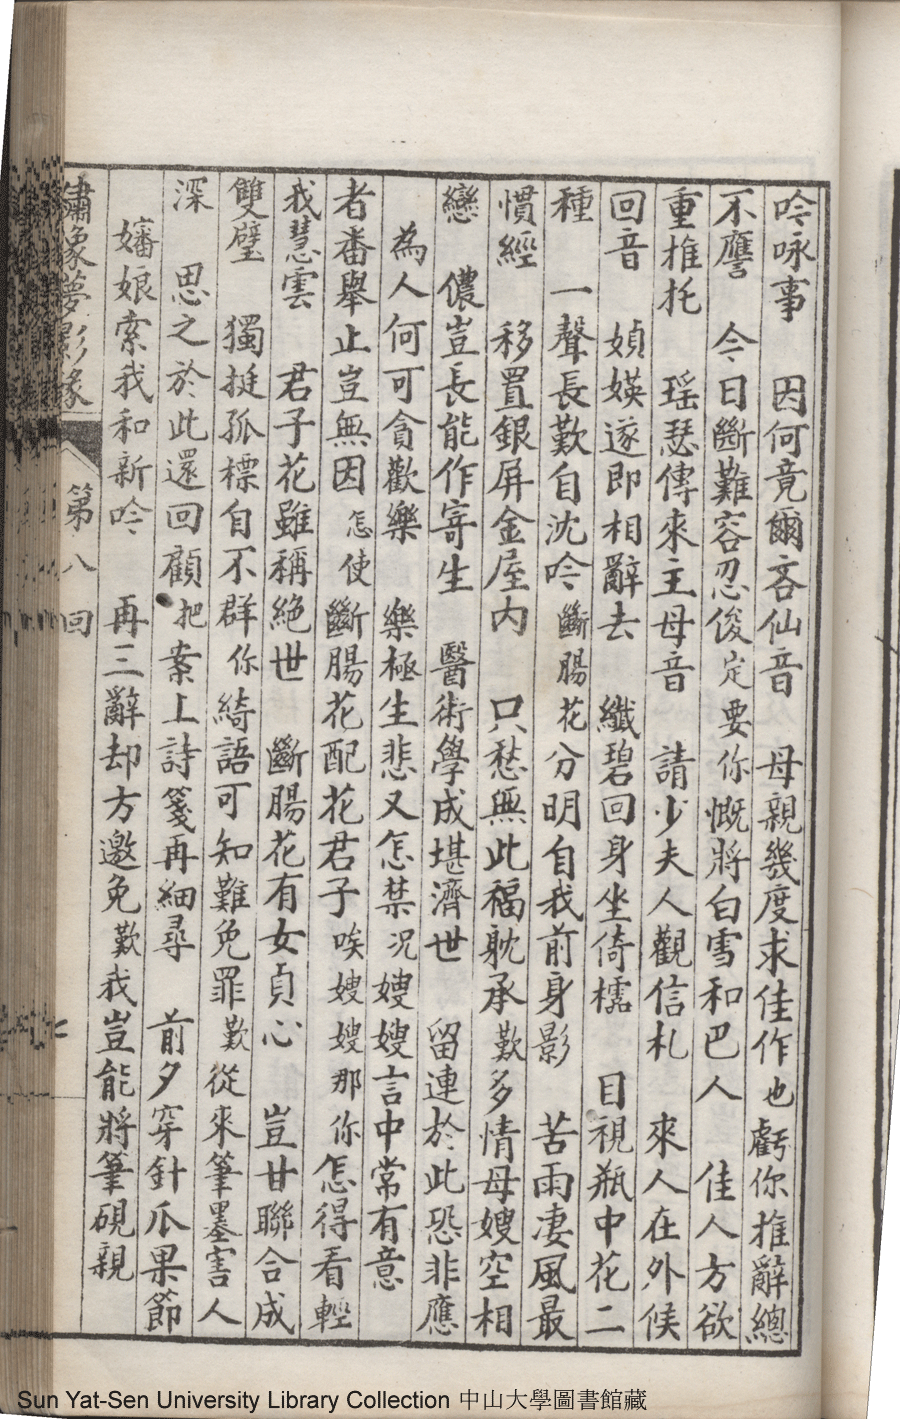 吟咏事　因何竟爾吝仙音　母親幾度求佳作也虧你推辭總
不應　今日斷難容忍俊定要你慨將白雪和巴人　佳人方欲
重推托　瑶瑟傳來主母音　請少夫人觀信札　來人在外候
回音　媜媖遂即相辭去　纖碧回身坐倚櫺　目視瓶中花二
種　一聲長歎自沈吟斷腸花分明自我前身影　苦雨凄風最
慣經　移置銀屏金屋内　只愁無此福躭承歎多情母嫂空相
戀　儂豈長能作寄生　醫術學成堪濟世　留連於此恐非應
為人何可貪歡樂　樂極生悲又怎禁况嫂嫂言中常有意
者番舉止豈無因怎使斷腸花配花君子唉嫂嫂那你怎得看輕
我慧雲　君子花雖稱絶世　斷腸花有女貞心　豈甘聯合成
雙璧　獨挺孤標自不群你綺語可知難免罪歎從來筆墨害人
深　思之於此還回顧把案上詩箋再細尋　前夕穿針瓜果節
嬸娘索我和新吟　再三辭却方邀免歎我豈能將筆硯親
繡像夢影緣　第八回
Sun Yat-Sen University Library Collection 中山大學圖書館藏